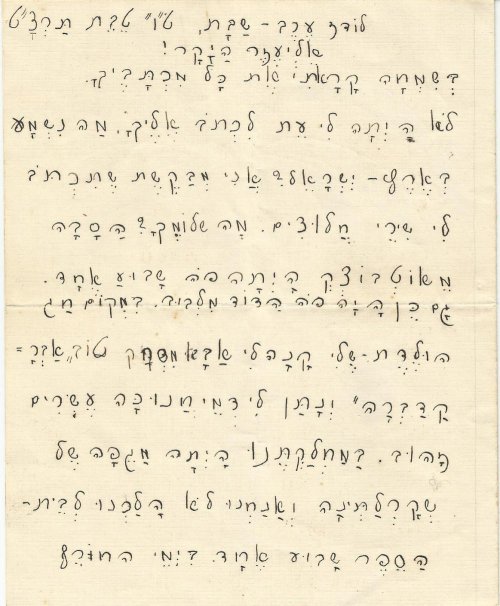 לודז ערב-שבת, ט"ו טבת תרצ"ט
אליעזר היקר!
בשמחה קראתי את כל מכתביך.
לא היתה לי עת לכתוב אליך. מה נשמע
בארץ-ישראל? אני מבקשת שתכתוב
לי שירי חלוצים. מה שלומך? הסבה
מאוטבוצק היתה פה שבוע אחד.
גם כן היה פה הדוד מלבוב. במקום חג
הולדת-שלי קנה לי אבא טוב "אברה=
קדברה" ונתן לי דמי חנוכה עשרים
זהוב. במחלקתנו היתה מגפה של
שקרלתינה ואנחנו לא הלכנו לבית-
הספר שבוע אחד. בימי החורף